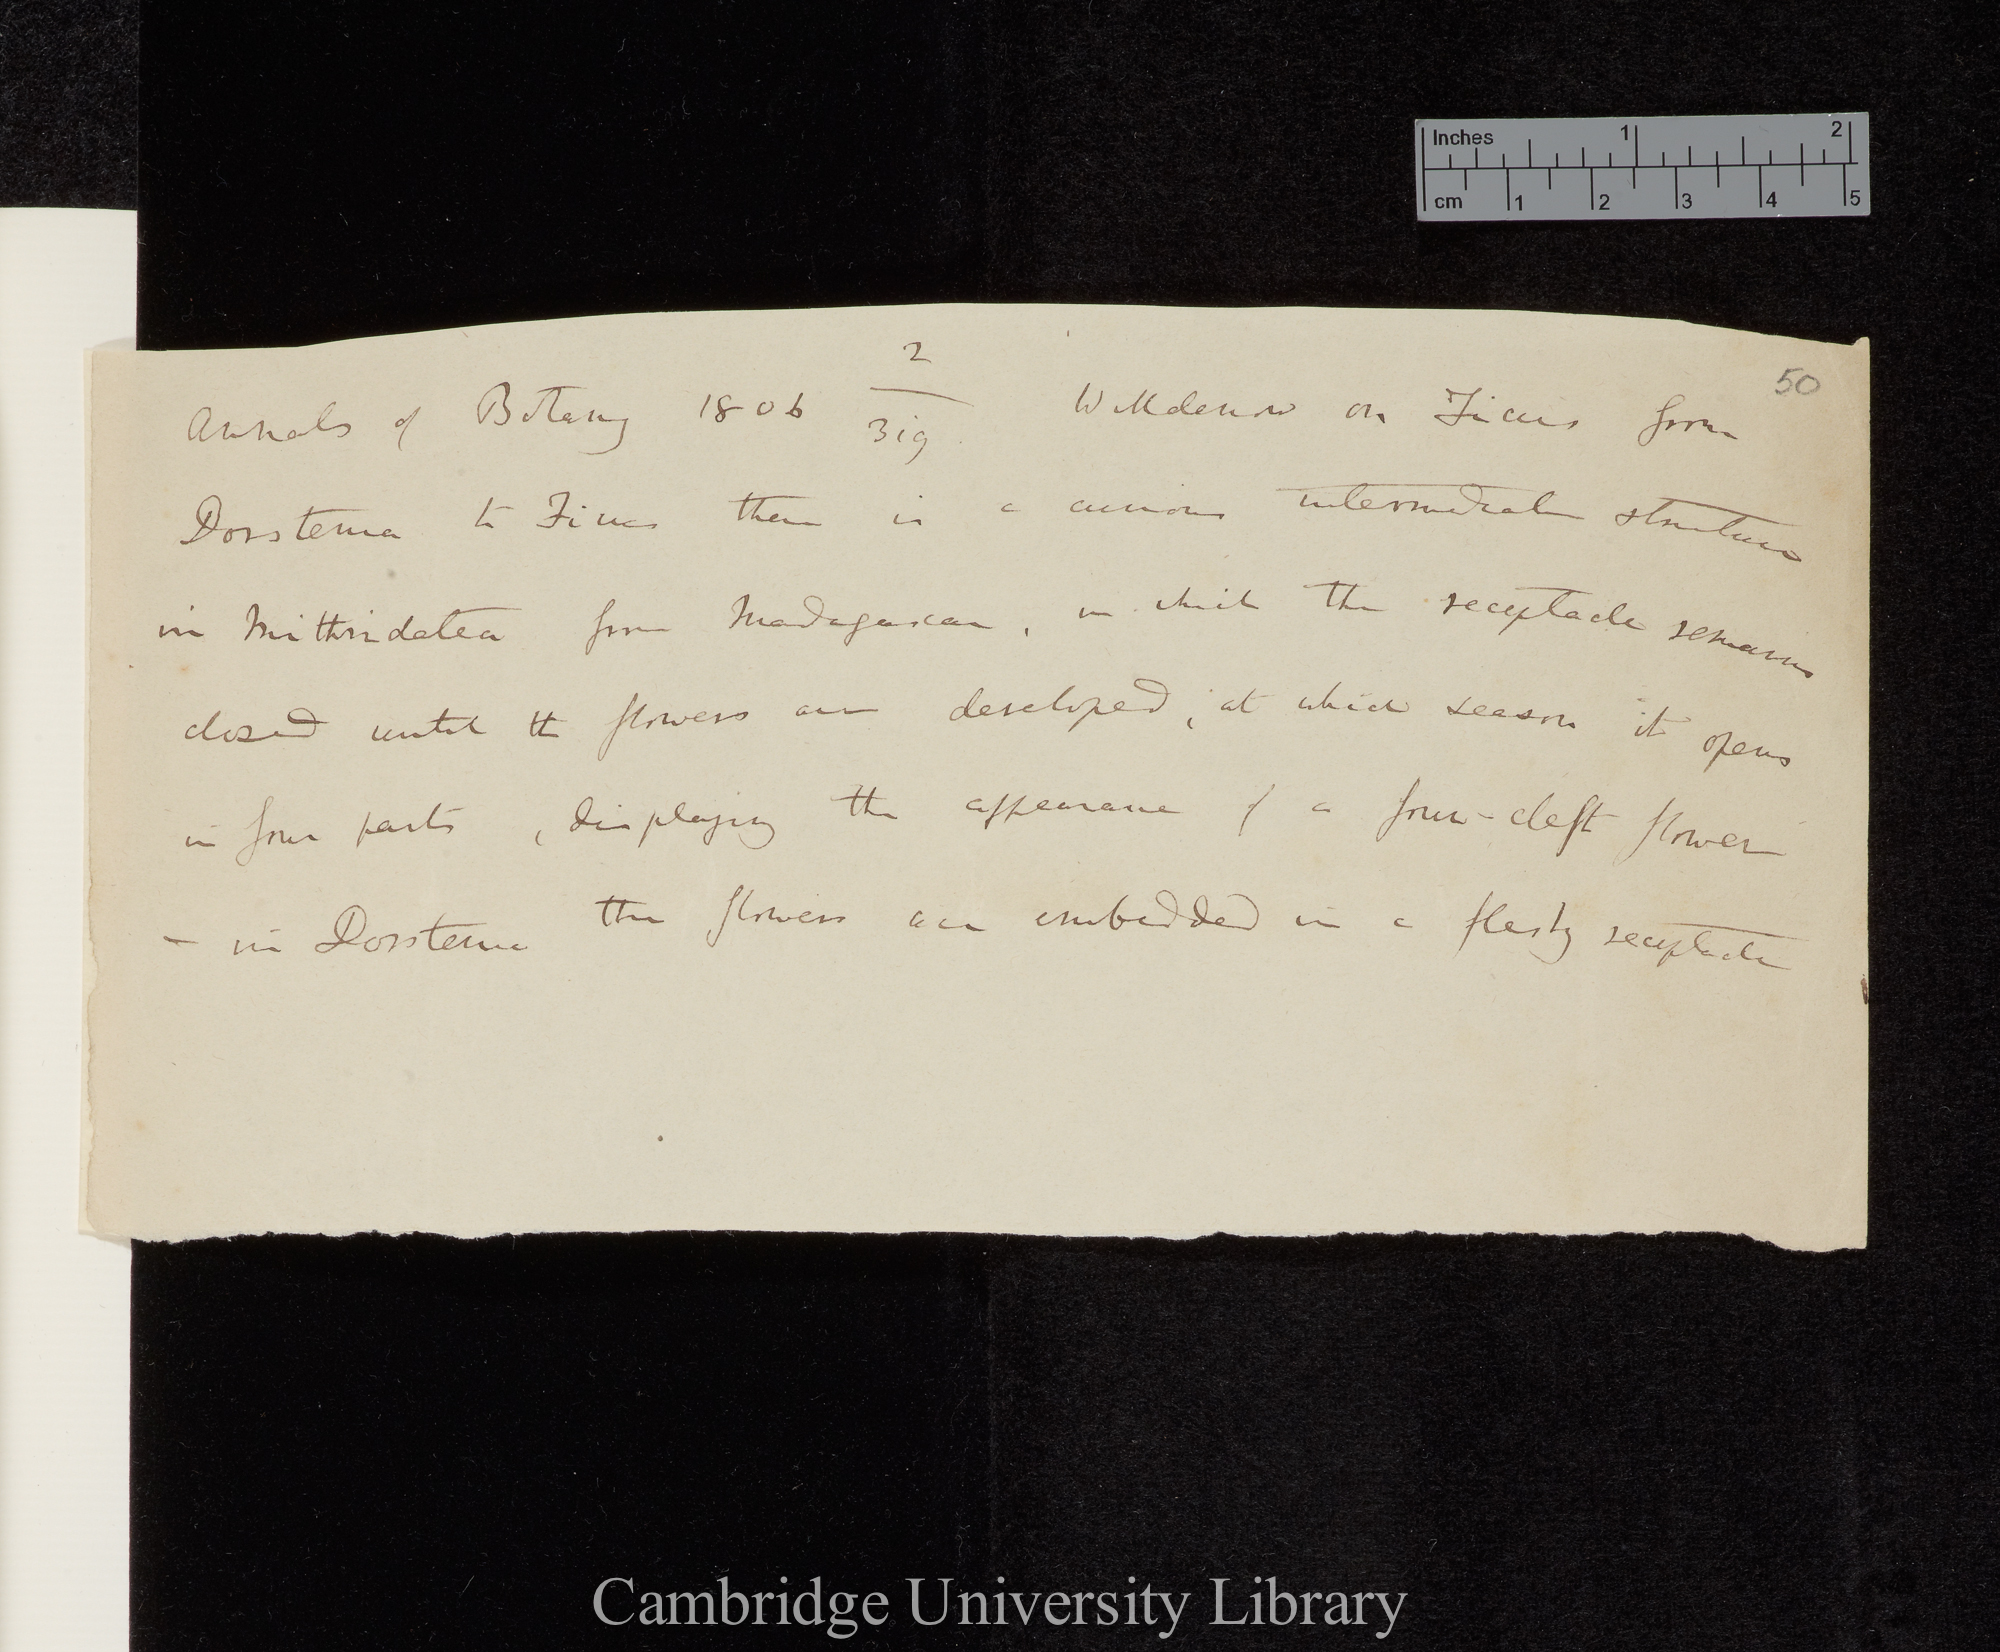 Inches 1 2
cm 1 2 3 4 5
50
Annals of Botany 1806 2/319 Willdenow on Ficus from
Dorstenia to Ficus there is a curious intermediate structure
in Mithridatea from Madagascar, in which the receptacle remains
closed until the flowers are developed, at which season it opens
in four parts, displaying the appearance of a four-cleft flower
— in Dorstenia the flowers are embedded in a fleshy receptacle
Cambridge University Library